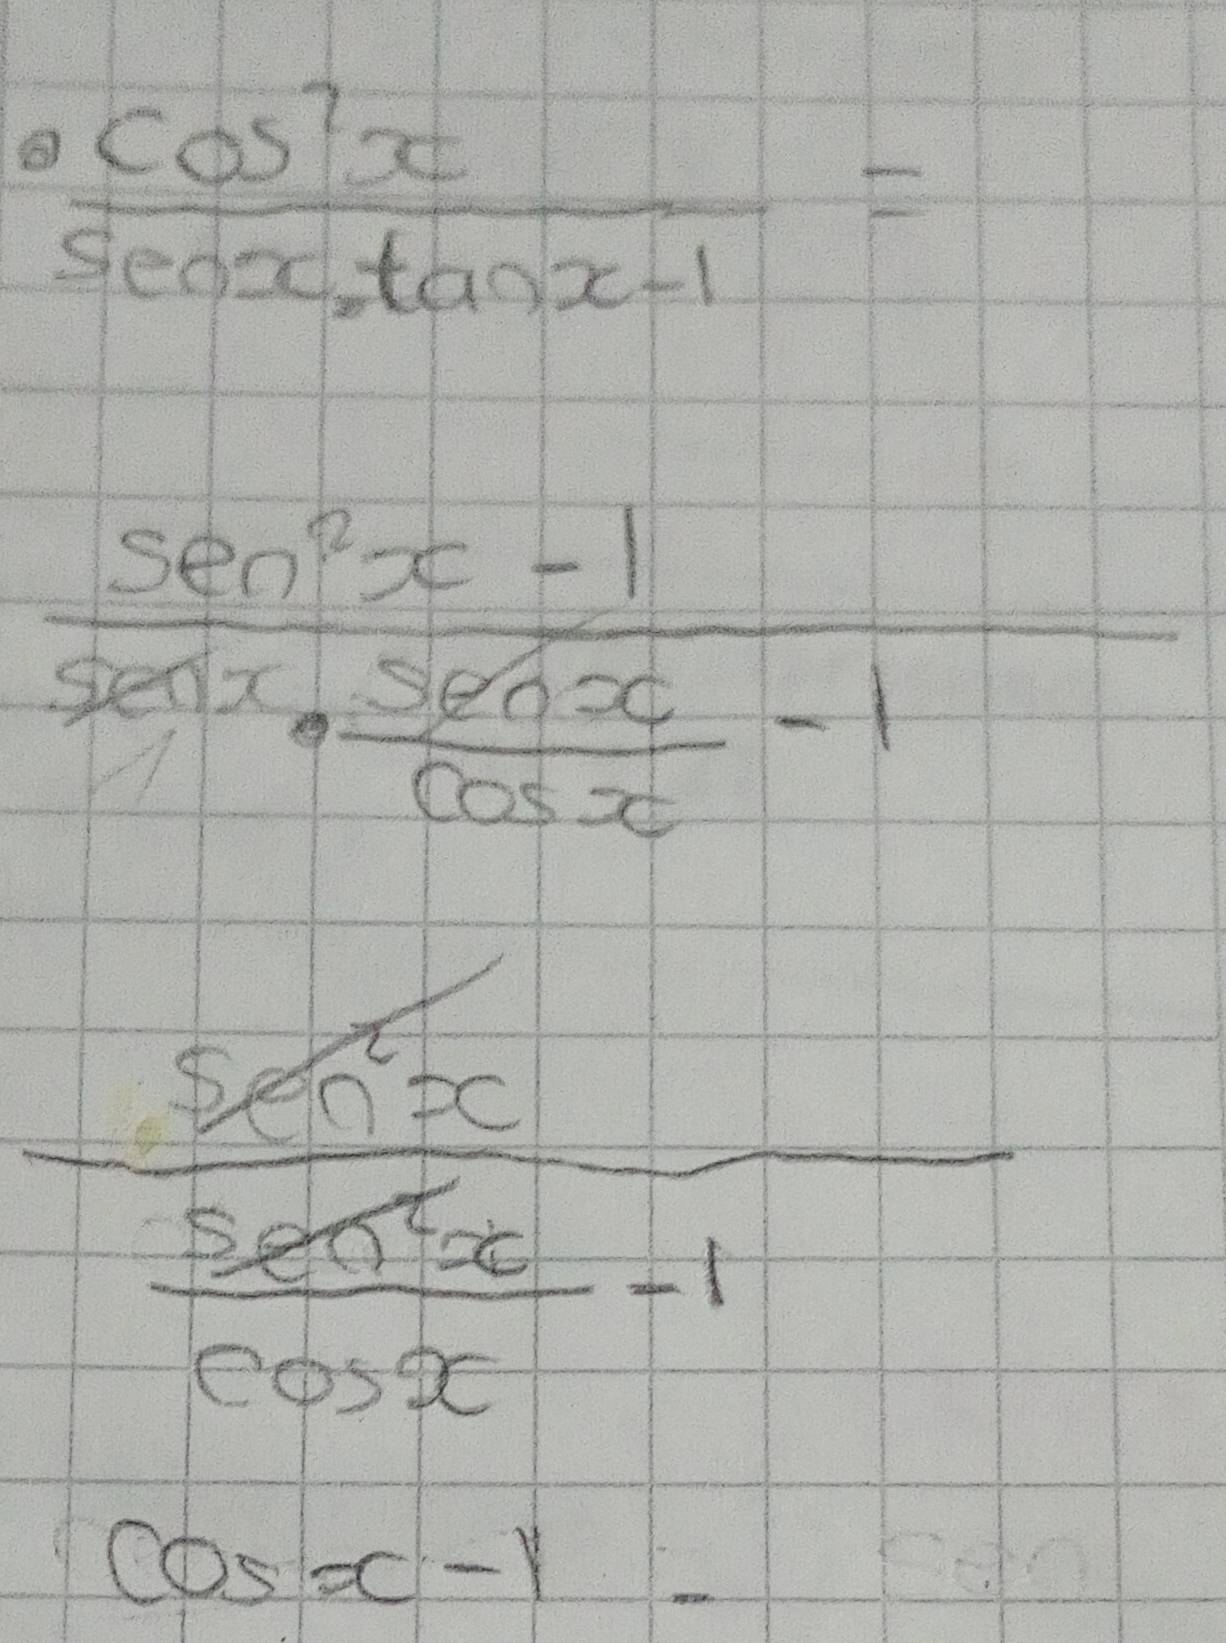 • cos²x =
senx . tanx - 1
sen²x - 1
senx • senx - 1
cosx
sen²x
sen²x - 1
cosx
cosx - 1 -